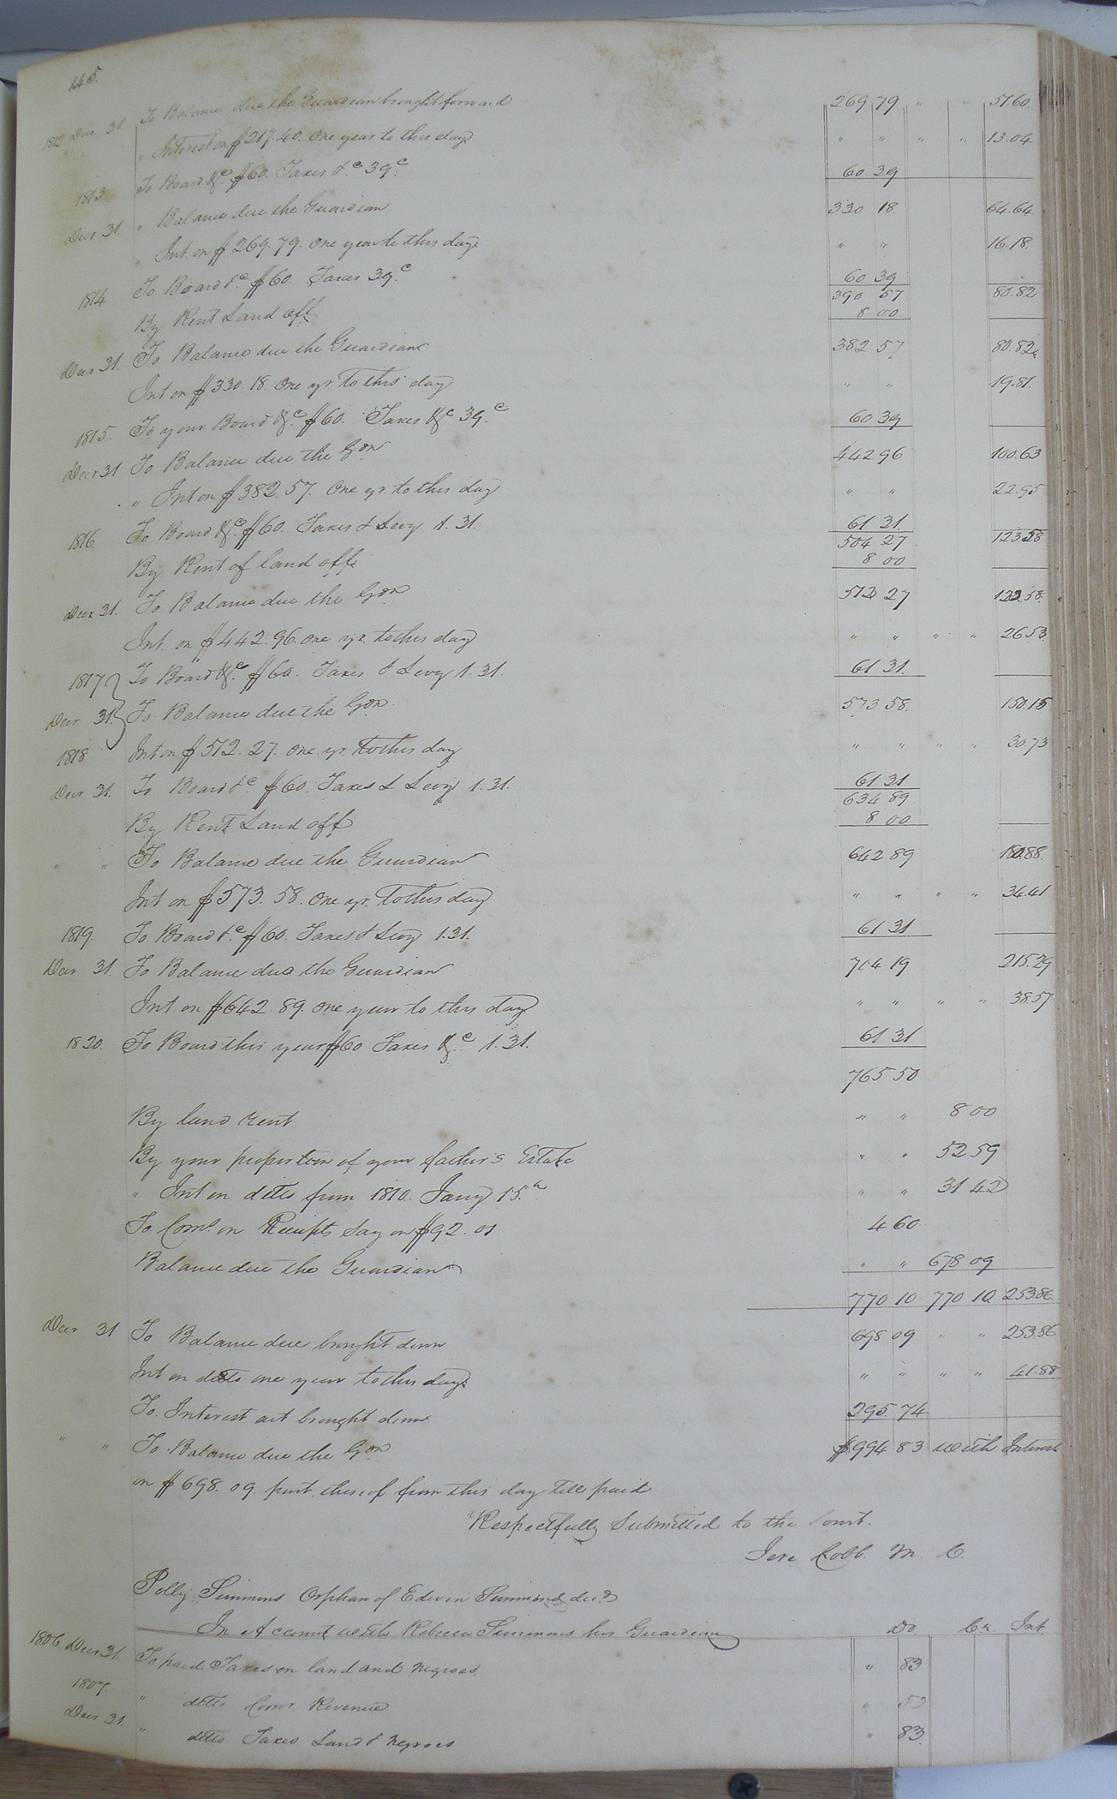 145.
1812 Decr 31 To Balance due the Guardian brought forward 269 79 " " 51.60
" Interest on $217.40. One year to this day " " " " 13.04
1813 To Board &c. $60. Taxes &c 39c. 60 39
Decr 31. " Balance due the Guardian 330 18. 64.64
" Int. on $269.79. One year to this day " " 16.18.
1814 To Board &c $60. Taxes 39.c 60 39
390 57 80.82
By Rent Land off 8 00
Decr 31. To Balance due the Guardian 382 57 80.82
Int on $330.18 One yr. to this day " " 19.81.
1815. To your Board &c. $60. Taxes &c 39.c 60 39
Decr 31 To Balance due the Gdn 442 96 100.63
" Int on $382.57. One yr. to this day " " 22.95
1816 To Board &c. $60. Taxes & Levy 1.31. 61 31
504 27 123.58
By Rent of land off 8 00
Decr 31. To Balance due the Gdn 512 27 123.58.
Int. on $442.96. one yr. to this day " " " " 26.53
1817 To Board &c. $60. Taxes & Levy 1.31. 61 31.
Decr 31. To Balance due the Gdn. 573 58. 150.15
1818 Int on $512.27. One yr. to this day " " " " 30.73
Decr 31. To Board &c $60. Taxes & Levy 1.31. 61 31
634 89
By Rent Land off 8 00
" " To Balance due the Guardian 642 89 180.88
Int on $573.58. One yr. to this day " " " " 34.41
1819. To Board &c $60. Taxes & Levy 1.31. 61 31
Decr 31. To Balance due the Guardian 704 19 215.29
Int on $642.89. One year to this day " " " " 38.57
1820. To Board this year $60 Taxes &c. 1.31. 61 31
765 50
By land rent " " 8 00
By your proportion of your father's Estate " " 52 59
" Int on ditto from 1810. Jany 15.th " " 31 42
To Coms. on Receipts Say on $92.01 4 60
Balance due the Guardian " " 678 09
770 10 770 10 253.86
Decr 31 To Balance due brought down 698 09 " " 253.86
Int on ditto one year to this day " " " " 41.88
To Interest act brought down 295 74
" " To Balance due the Gdn $994 83 with Interest
on $698.09. part thereof from this day till paid
Respectfully Submitted to the Court.
Jere Cobb M. C.
Polly Simmons Orphan of Edwin Simmons decd
In Account with Rebecca Simmons her Guardian Dr Cr. Int.
1806 Decr 31 To paid Taxes on land and negroes " 83
1807 " ditto Comr. Revenue "
Decr 31. " ditto Taxes Land & negroes " 83.